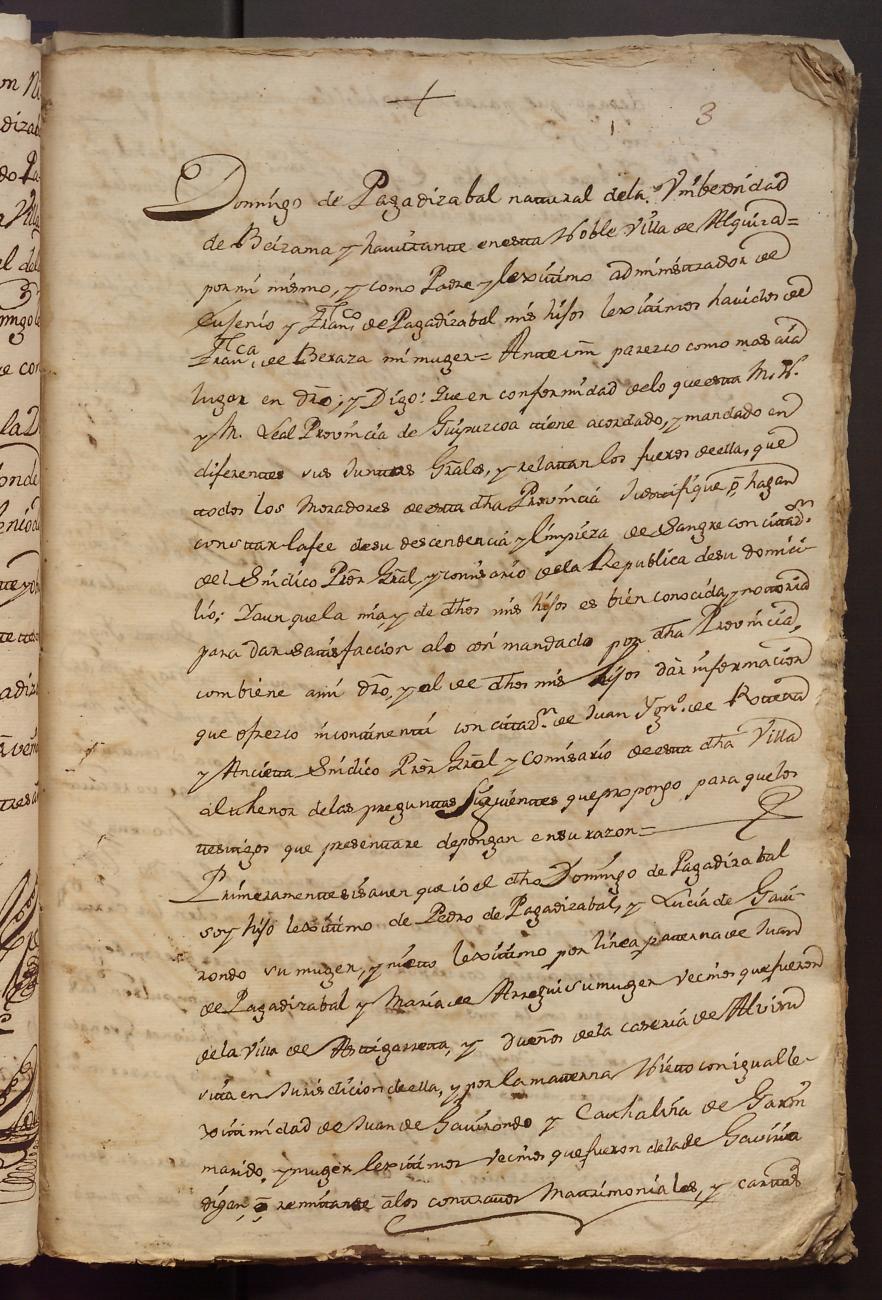 3
Domingo de Pagadizabal natural dela Vniberсidad
de Beizama y havittante enestta Noble Villa de Alquiza=
por mi mismo, y como Padre y lexitimo administrador de
Eusenio y Franco. de Pagadizabal mis hijos lexitimos havidos de
Franca. de Beraza mi muger= Ante vm parezco como mas aia
lugar en dro; y Digo: Que en conformidad delo que estta M. N.
y M. Leal Provincia de Guipuzcoa ttiene acordado, y mandado en
diferenttes sus Junttas Grales, y relattan los fueros de ella, que
ttodos los Moradores de estta dha Provincia Justifiquen hagan
consttar lafee desu descendencia y limpieza de Sangre con cittazn.
del Sindico Pror Gral, y comisario dela Republica desu domici-
lio; Y aunque la mia, y de dhos mis hijos es bien conocida, y nottoria
para dar sattisfaccion alo asi mandado por dha Provincia,
combiene ami dro, y al de dhos mis hijos dar informacion
que ofrezco incontinentti con cittazn. de Juan Ygno. de Rotetta
y Ancietta Sindico Pror Gral y Comisario de estta dha Villa
al thenor delas pregunttas Siguienttes que propongo para quelos
ttesttigos que presenttare depongan en su razon=
Primeramentte si saven que io el dho Domingo de Pagadizabal
soy hijo lexitimo de Pedro de Pagadizabal, y Lucia de Gavi-
rondo su muger, y nietto lexitimo por linea patterna de Juan
de Pagadizabal y Maria de Arregui su muger Vecinos que fueron
dela Villa de Asttigarretta, y dueños dela caseria de
sitta en Jurisdicion de ella, y por la matterna Nietto con igual le-
xitimidad de Juan de Gavirondo y Cathalina de Garin
marido, y muger lexitimos Vecinos que fueron dela de Gaviria
digan, remittanse alos conttrattos Mattrimoniales, y carttas